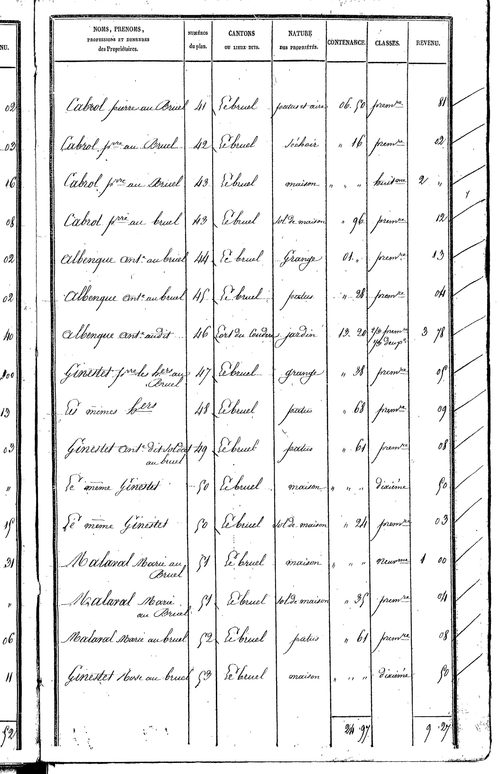 NU.
02
02
16
08
02
02
40
200
13
03
"
15
31
"
06
11
52
NOMS, PRENOMS, PROFESSIONS ET DEMEURES des Propriétaires. NUMÉROS du plan. CANTONS OU LIEUX DITS. NATURE DES PROPRIÉTÉS. CONTENANCE. CLASSES. REVENU.
Cabrol pierre au Bruel 41 Le bruel patus et aire 06. 50 premre 81
Cabrol prre au Bruel 42 Le bruel séchoir " 16 premre 02
Cabrol prre au Bruel 43 Le bruel maison " " " huitme 2 "
Cabrol prre au bruel 43 Le bruel sol de maison " 96 premre 12
Albenque ant.e au bruel 44 Le bruel grange 01. " premre 13
Albenque ant.e au bruel 45 Le bruel patus " 28 premre 04
Albenque ant.e audit 46 jardin 13. 20 3 78
Ginestet prre les hers au Bruel 47 Le bruel grange " 38 premre 05
Les mêmes hers 48 Le bruel patus " 68 premre 09
Ginestet ant.e dit soldat au bruel 49 Le bruel patus " 61 premre 08
Le même Ginestet 50 Le bruel maison " " " dixième 50
Le même Ginestet 50 Le bruel sol de maison " 24 premre 03
Malaval Marie au Bruel 51 Le bruel maison " " " neuvme 1 00
Malaval Marie au Bruel 51 Le bruel sol de maison " 35 premre 04
Malaval Marie au bruel 52 Le bruel patus " 61 premre 08
Ginestet Rose au bruel 53 Le bruel maison " " " dixième 50
24. 97 9. 27